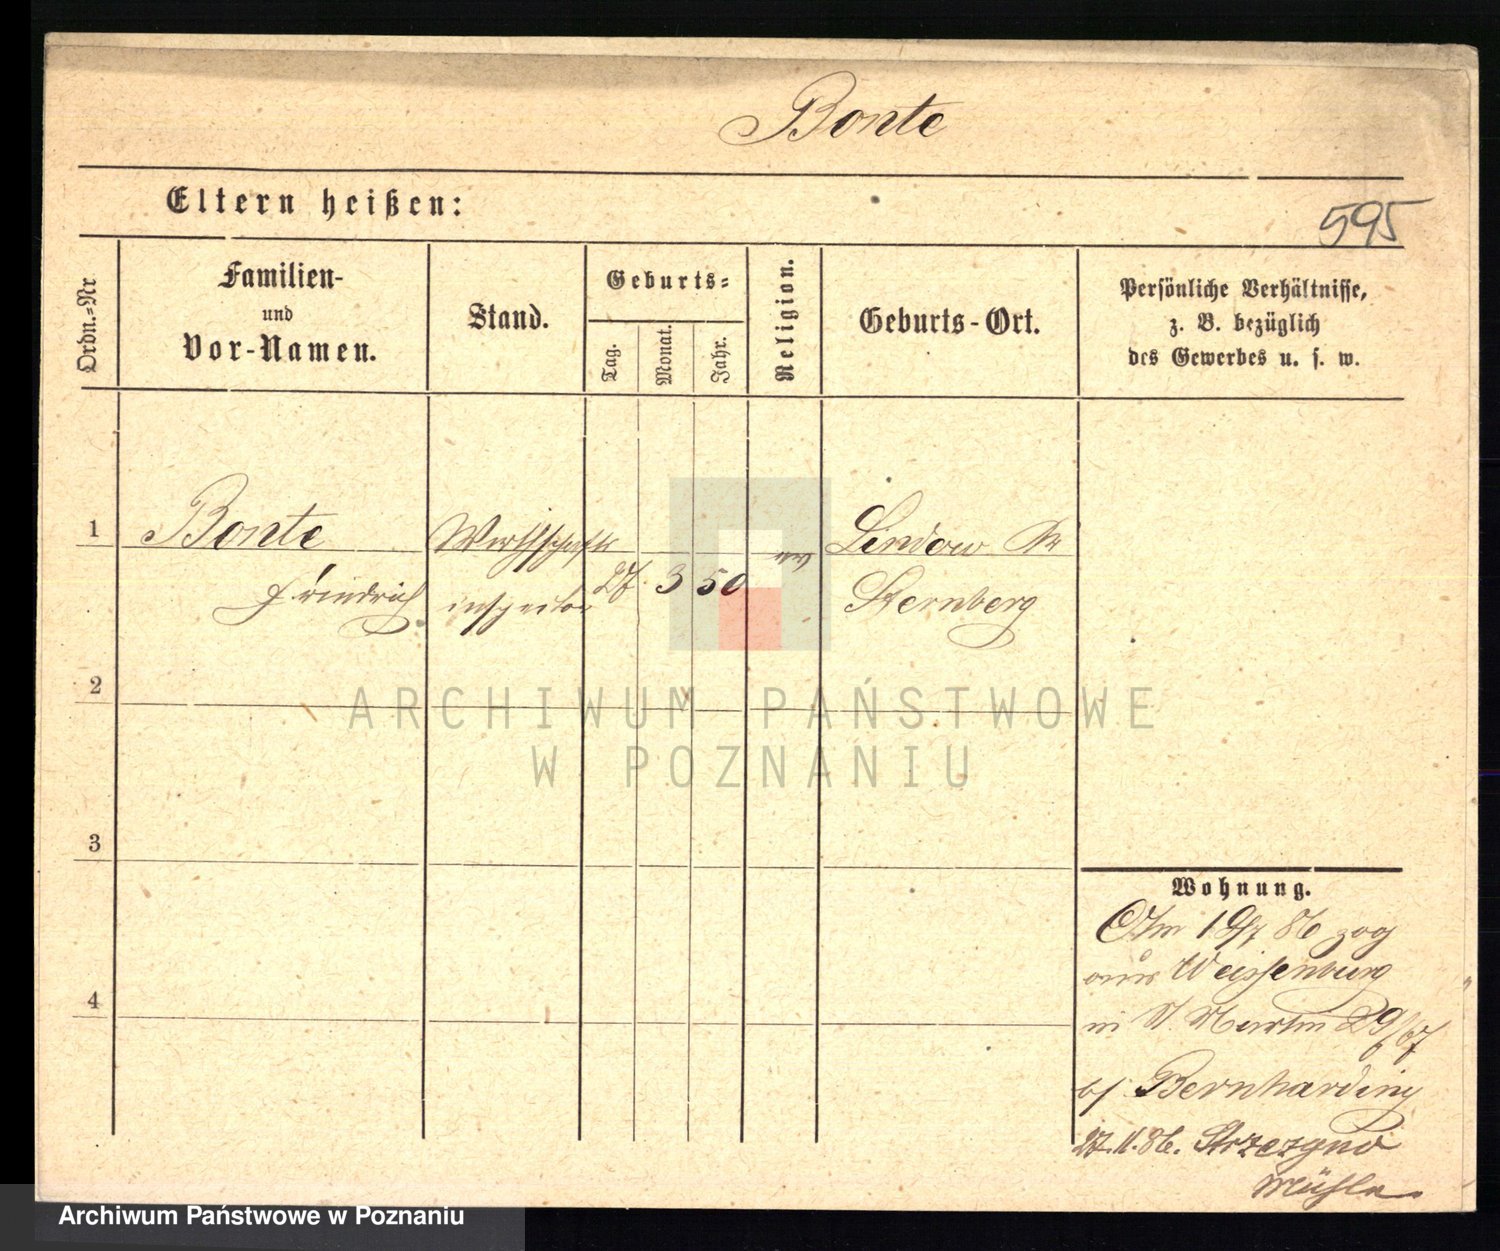 Bonte
Eltern heißen:
595
Ordn.=Nr
Familien-
und
Vor-Namen.
Stand.
Geburts=
Tag.
Monat.
Jahr.
Religion.
Geburts-Ort.
Persönliche Verhältnisse,
z. B. bezüglich
des Gewerbes u. s. w.
1
Bonte
Friedrich
Wirthschafts
inspector
27. 3 50
ev
Lindow Kr
Sternberg
2
3
4
Wohnung.
Am 19/7 86 zog
aus Weissenburg
in St. Martin 29/67
b/ Bernhardiny
27.11.86.
Mühle
ARCHIWUM PAŃSTWOWE
W POZNANIU
Archiwum Państwowe w Poznaniu